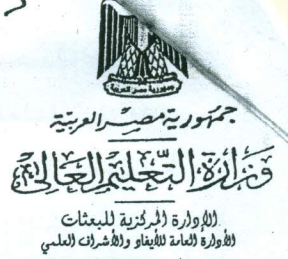 جمهورية مصر العربية
وزارة التعليم العالي
الإدارة المركزية للبعثات
الأدارة العامة للأيفاد والأشراف العلمي